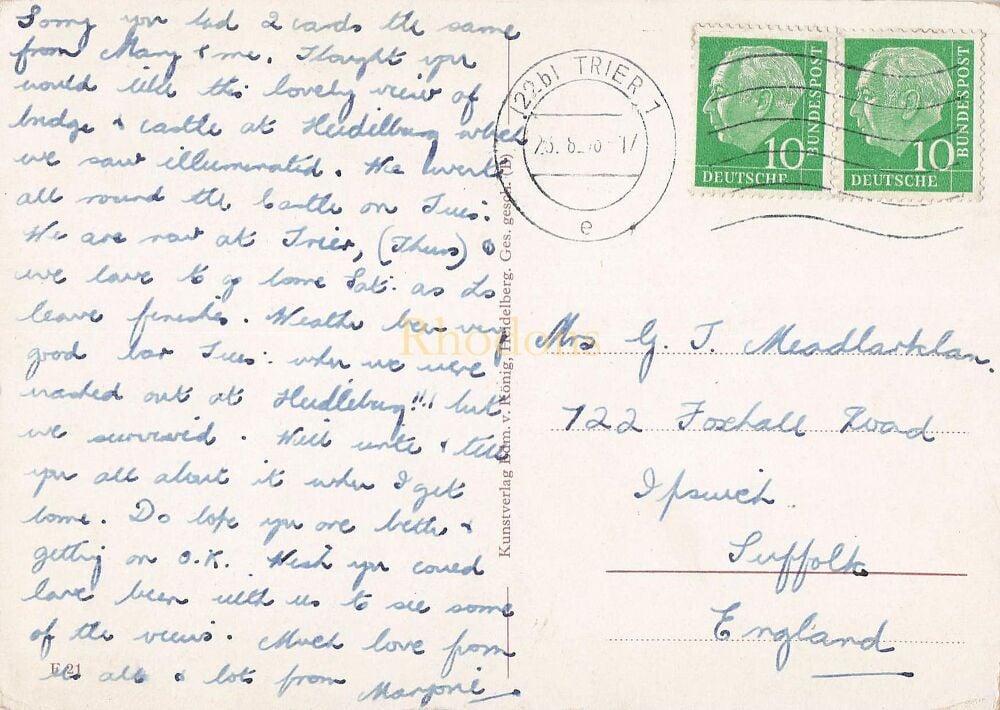 Sorry you had 2 cards the same
from Mary & me. Thought you
would like this lovely view of
bridge & castle at Heidelburg which
we saw illuminated. We went
all round the Castle on Tues:
We are now at Trier, (Thurs) &
we have to go home Sat: as Ls
leave finishes. Weather been very
good bar Tues: when we were
washed out at Heidleburg!!! but
we survived. Will write & tell
you all about it when I get
home. Do hope you are better &
getting on O.K. Wish you could
have been with us to see some
of the views. Much love from
us all & lots from
Marjorie
E 21
Kunstverlag Edm. v. König, Heidelberg. Ges. gesch. (D)
(22b) TRIER 1
e
10
DEUTSCHE
BUNDESPOST
10
DEUTSCHE
BUNDESPOST
Mrs G. T.
722 Foxhall Road
Ipswich
Suffolk
England
Rhodons